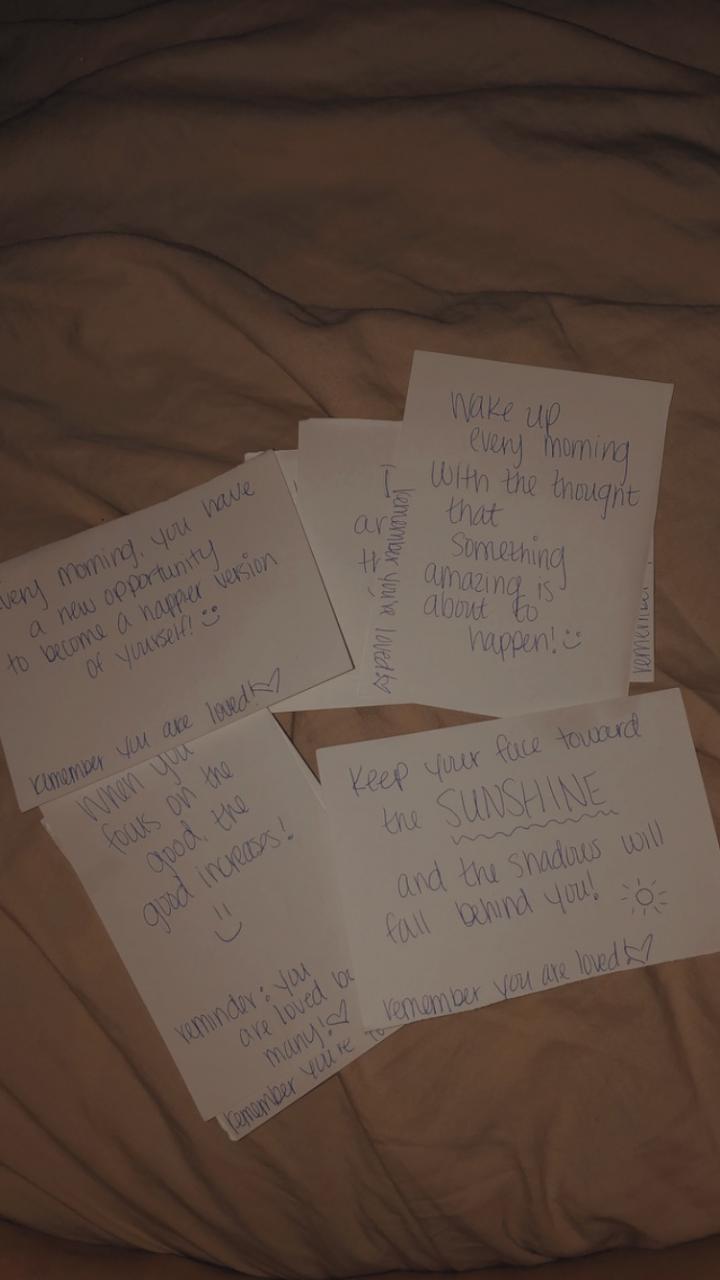 Wake up
every morning
with the thought
that
something
amazing is
about to
happen!
remember you're loved by
remember
very morning, you have
a new opportunity
to become a happier version
of yourself!
remember you are loved!
When you
focus on the
good, the
good increases!
reminder: you
are loved
many!
remember you're
Keep your face toward
the SUNSHINE
and the shadows will
fall behind you!
remember you are loved!